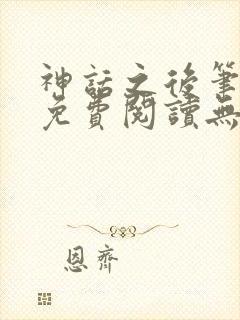 神話之後筆
免費閱讀無
恩齊